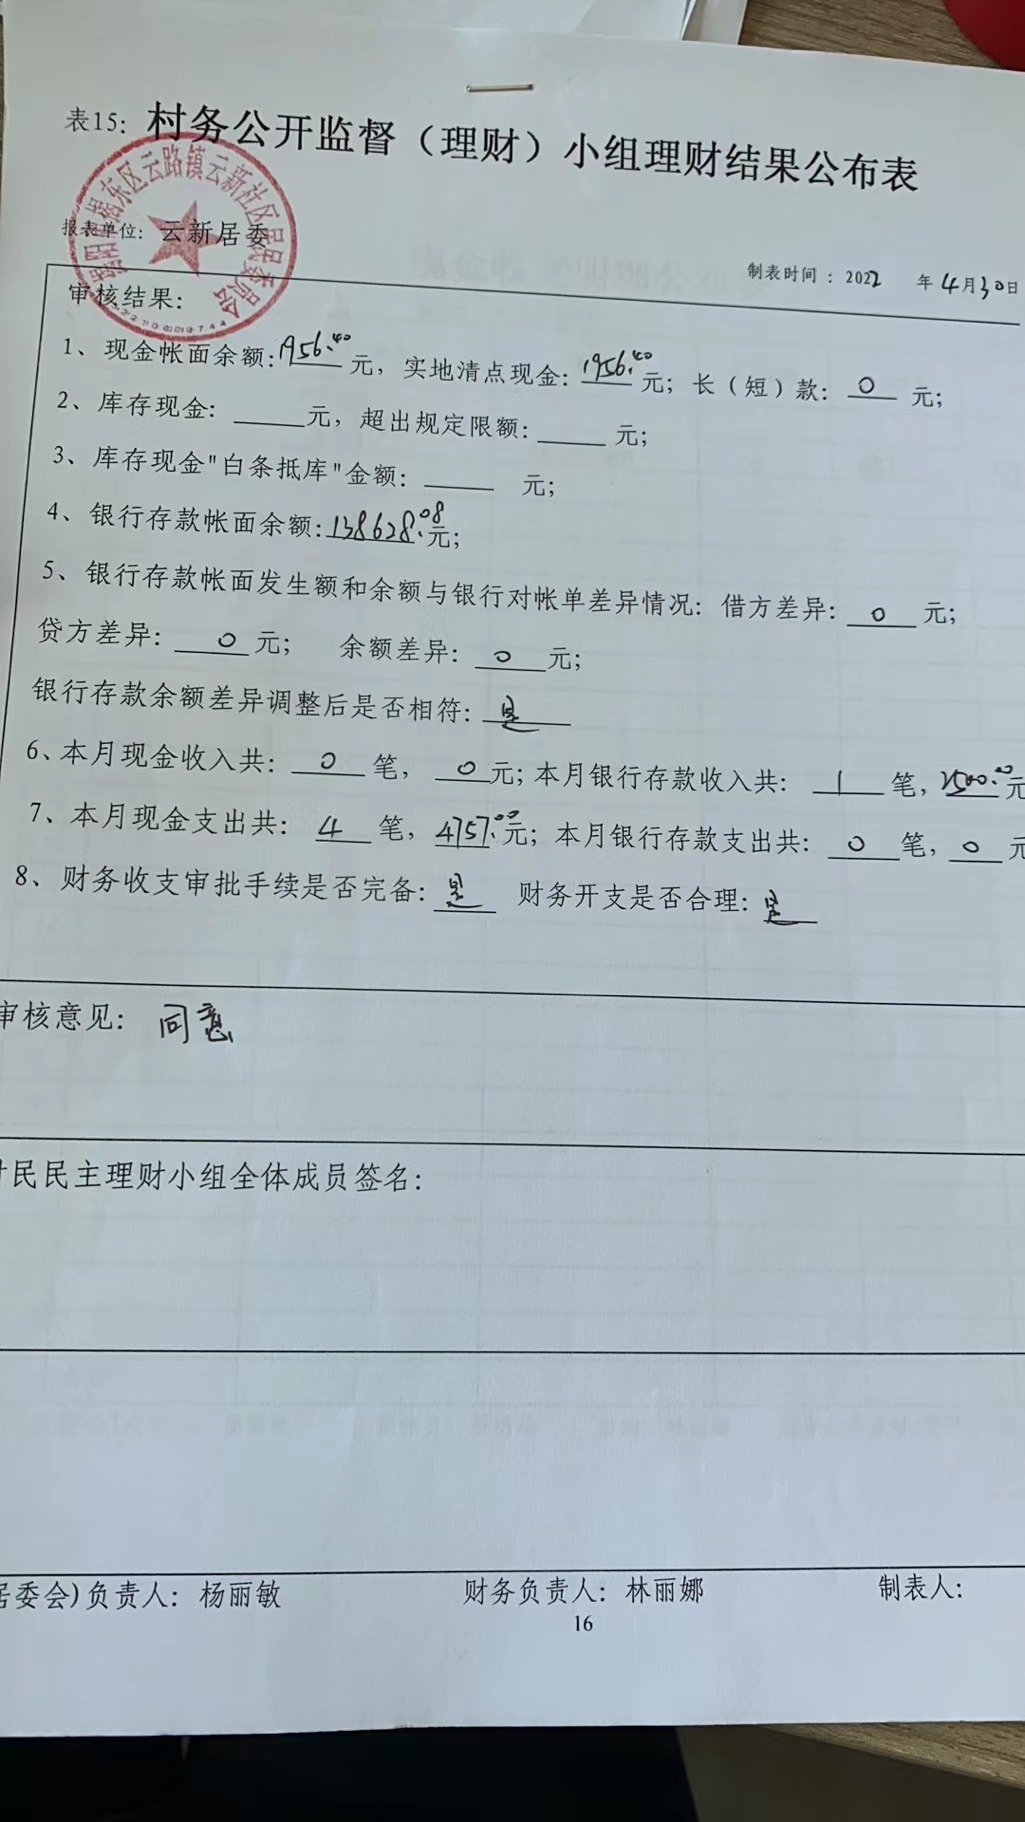 表15: 村务公开监督（理财）小组理财结果公布表
东区云路镇云新社区居民委员会
报表单位: 云新居委
制表时间：2022 年4月30日
审核结果:
1、现金帐面余额:1956.40元, 实地清点现金: 1956.40元; 长（短）款: 0 元;
2、库存现金: ____元, 超出规定限额: ____ 元;
3、库存现金"白条抵库"金额: ____ 元;
4、银行存款帐面余额:138628.08元;
5、银行存款帐面发生额和余额与银行对帐单差异情况: 借方差异: 0 元;
贷方差异: 0 元; 余额差异: 0 元;
银行存款余额差异调整后是否相符: 是
6、本月现金收入共: 0 笔, 0 元; 本月银行存款收入共: 1 笔, 2500.00元
7、本月现金支出共: 4 笔, 4757.00元; 本月银行存款支出共: 0 笔, 0 元
8、财务收支审批手续是否完备: 是 财务开支是否合理: 是
审核意见: 同意
民民主理财小组全体成员签名:
居委会)负责人: 杨丽敏 财务负责人: 林丽娜 制表人:
16